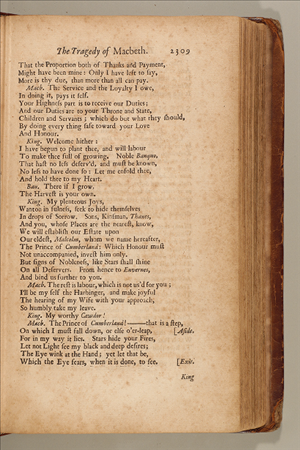 The Tragedy of Macbeth. 2309
That the Proportion both of Thanks and Payment,
Might have been mine: Only I have left to say,
More is thy due, than more than all can pay.
Macb. The Service and the Loyalty I owe,
In doing it, pays it self.
Your Highness part is to receive our Duties;
And our Duties are to your Throne and State,
Children and Servants; which do but what they should,
By doing every thing safe toward your Love
And Honour.
King. Welcome hither:
I have begun to plant thee, and will labour
To make thee full of growing. Noble Banquo,
That hast no less deserv'd, and must be known,
No less to have done so: Let me enfold thee,
And hold thee to my Heart.
Ban. There if I grow,
The Harvest is your own.
King. My plenteous Joys,
Wanton in fulness, seek to hide themselves
In drops of Sorrow. Sons, Kinsman, Thanes,
And you, whose Places are the nearest, know,
We will establish our Estate upon
Our eldest, Malcolm, whom we name hereafter,
The Prince of Cumberland: Which Honour must
Not unaccompanied, invest him only,
But signs of Nobleness, like Stars shall shine
On all Deservers. From hence to Envernes,
And bind us further to you.
Macb. The rest is labour, which is not us'd for you;
I'll be my self the Harbinger, and make joyful
The hearing of my Wife with your approach;
So humbly take my leave.
King. My worthy Cawdor!
Macb. The Prince of Cumberland!——that is a step,
On which I must fall down, or else o'er-leap, [Aside.
For in my way it lies. Stars hide your Fires,
Let not Light see my black and deep desires;
The Eye wink at the Hand; yet let that be,
Which the Eye fears, when it is done, to see. [Exit.
King